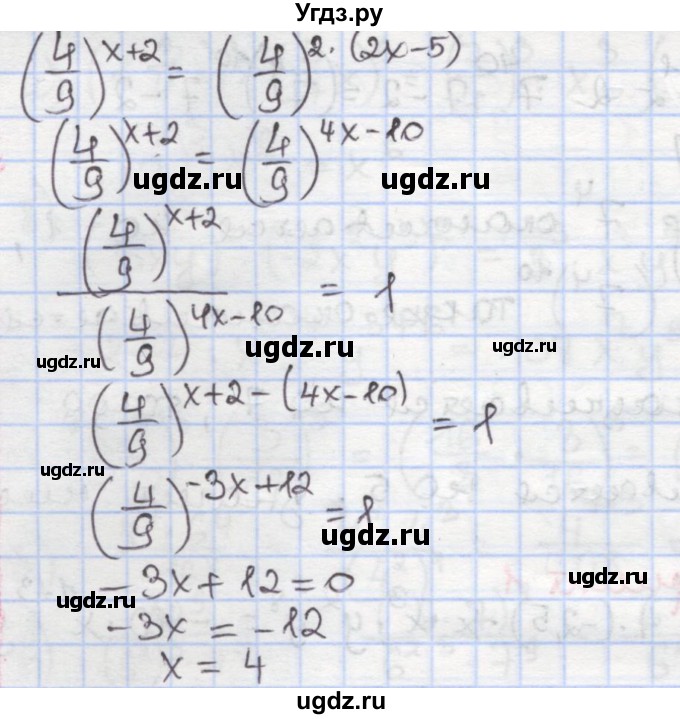 Угдз.ру
(4/9)^(x+2) = (4/9)^(2·(2x-5))
(4/9)^(x+2) = (4/9)^(4x-10)
ugdz.ru ugdz.ru
(4/9)^(x+2) / (4/9)^(4x-10) = 1
ugdz.ru ugdz.ru ugdz.ru
(4/9)^(x+2-(4x-10)) = 1
ugdz.ru
(4/9)^(-3x+12) = 1
ugdz.ru
-3x+12=0
ugdz.ru ugdz.ru
-3x = -12
x = 4
ugdz.ru